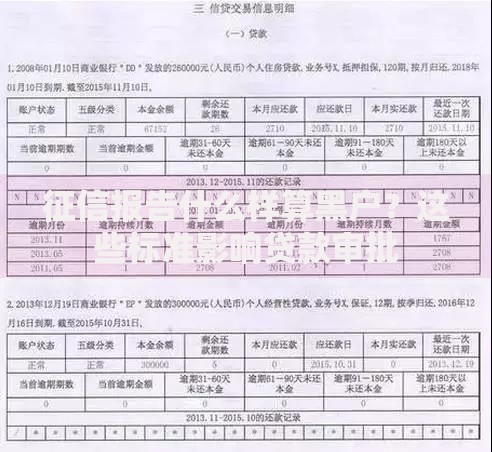 三 信贷交易信息明细
（一）贷款
1.2008年01月10日商业银行"DD"发放的260000元(人民币)个人住房贷款,业务号X,抵押担保,120期,按月归还,2018年
01月10日到期.截至2015年11月10日,
账户状态 五级分类 本金余额 剩余还款期数 本月应还款 应还款日 本月实还款 最近一次还款日期
正常 正常 67152 26 2710 2015.11.10 2710 2015.11.10
当前逾期期数 当前逾期金额 逾期31-60天未还本金 逾期61-90天未还本金 逾期91-180天未还本金 逾期180天以上未还本金
0 0 0 0 0 0
2013.12-2015.11的还款记录
征信报告什么样算黑户？这
些标准影响贷款审批
逾期月份 持续月数 逾期金额 逾期月份 持续月数 逾期金额
2013.11 1767
2013.05 2708
2011.05 1 2708 2011.02 2708
2.2013年12月19日商业银行"EP"发放的300000元(人民币)个人经营性贷款,业务号X,保证,12期,按季归还,2016年12
月16日到期.截至2015年10月31日,
账户状态 五级分类 本金余额 剩余还款期数 本月应还款 应还款日 本月实还款 最近一次还款日期
正常 正常 300000 5 0 2015.10.31 0 2013.12.19
当前逾期期数 当前逾期金额 逾期31-60天未还本金 逾期61-90天未还本金 逾期91-180天未还本金 逾期180天以上未还本金
0 0 0 0 0 0
2013.11-2015.10的还款记录
/ * * * * * * * * * * * * * * * * * * * * * * *